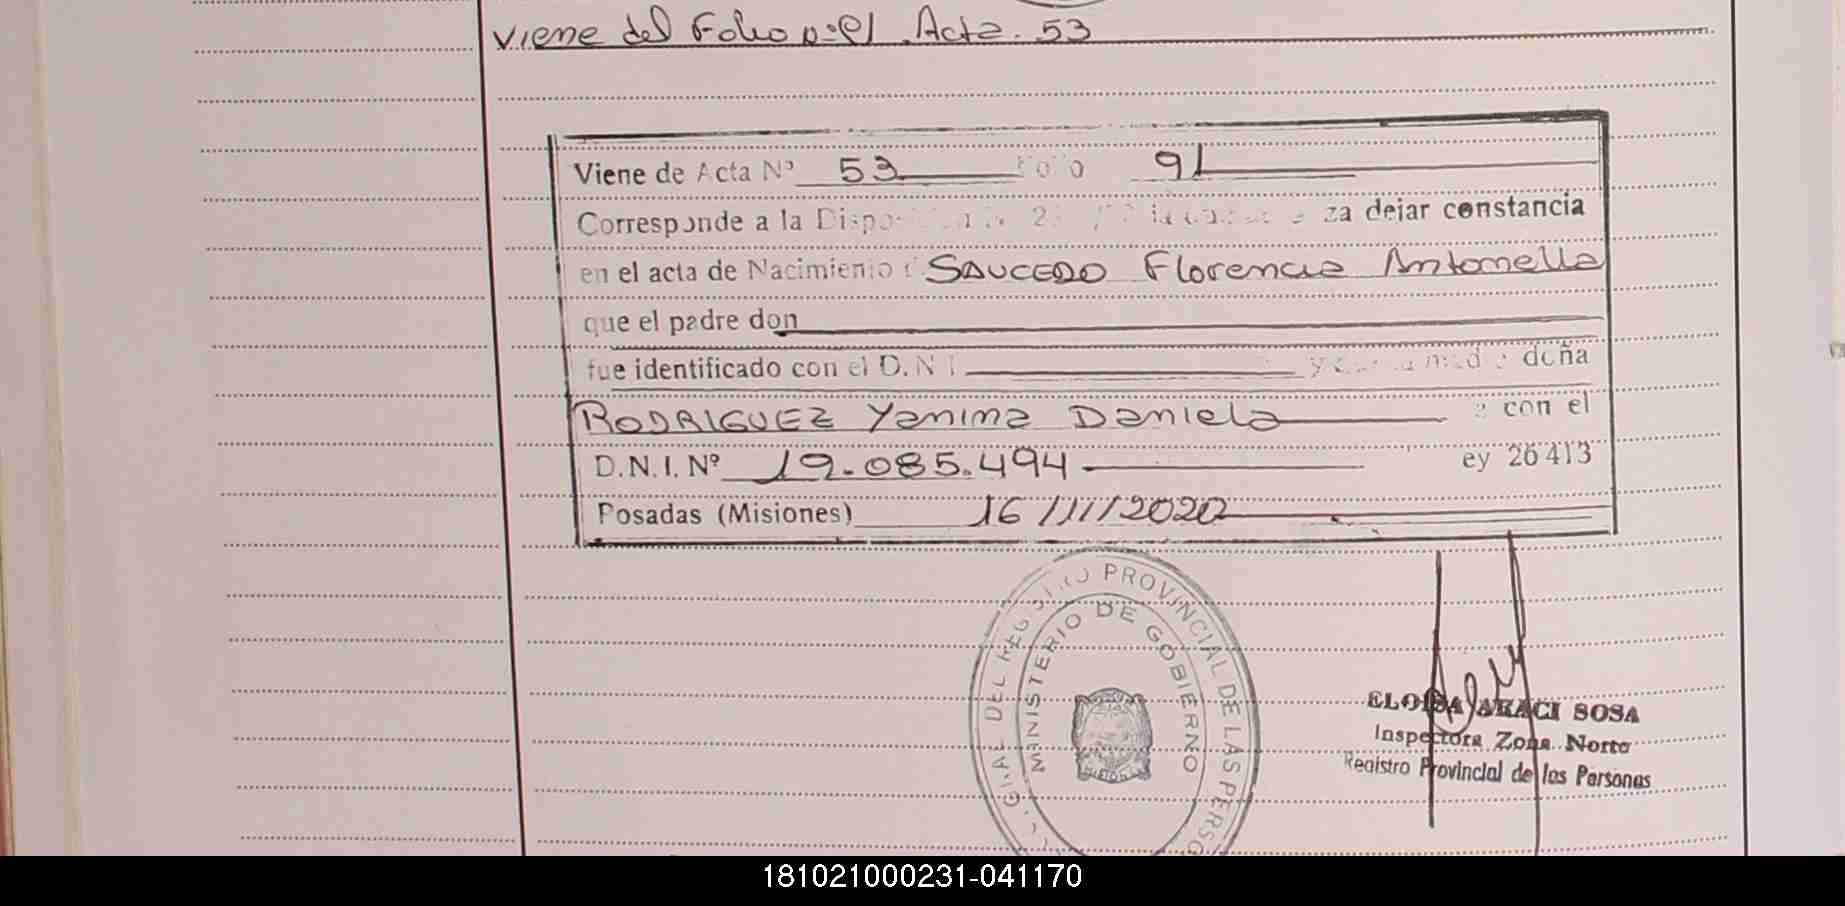 Viene del Folio nº 91 Acta. 53
Viene de Acta Nº 53 Folio 91
Corresponde a la za dejar constancia
en el acta de Nacimiento SAUCEDO Florencia Antonella
que el padre don
fue identificado con el D.N.I doña
RODRIGUEZ Yanina Daniela con el
D.N.I. Nº 19.085.494 ey 26413
Posadas (Misiones) 16/11/2020
DEL REGISTRO PROVINCIAL DE LAS PERSO
MINISTERIO DE GOBIERNO
MISIONES
ELOISA ARACI SOSA
Inspectora Zona Norte
Registro Provincial de las Personas
181021000231-041170